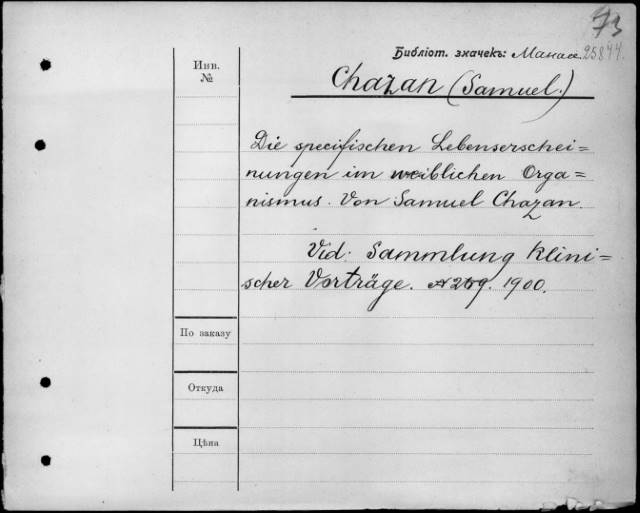 73
Библіот. значекъ: Манасс. 25844.
Инв.
№
Chazan (Samuel.)
Die specifischen Lebenserschei=
nungen im weiblichen Orga=
nismus. Von Samuel Chazan.
Vid: Sammlung klini=
scher Vorträge. № 269. 1900.
По заказу
Откуда
Цѣна